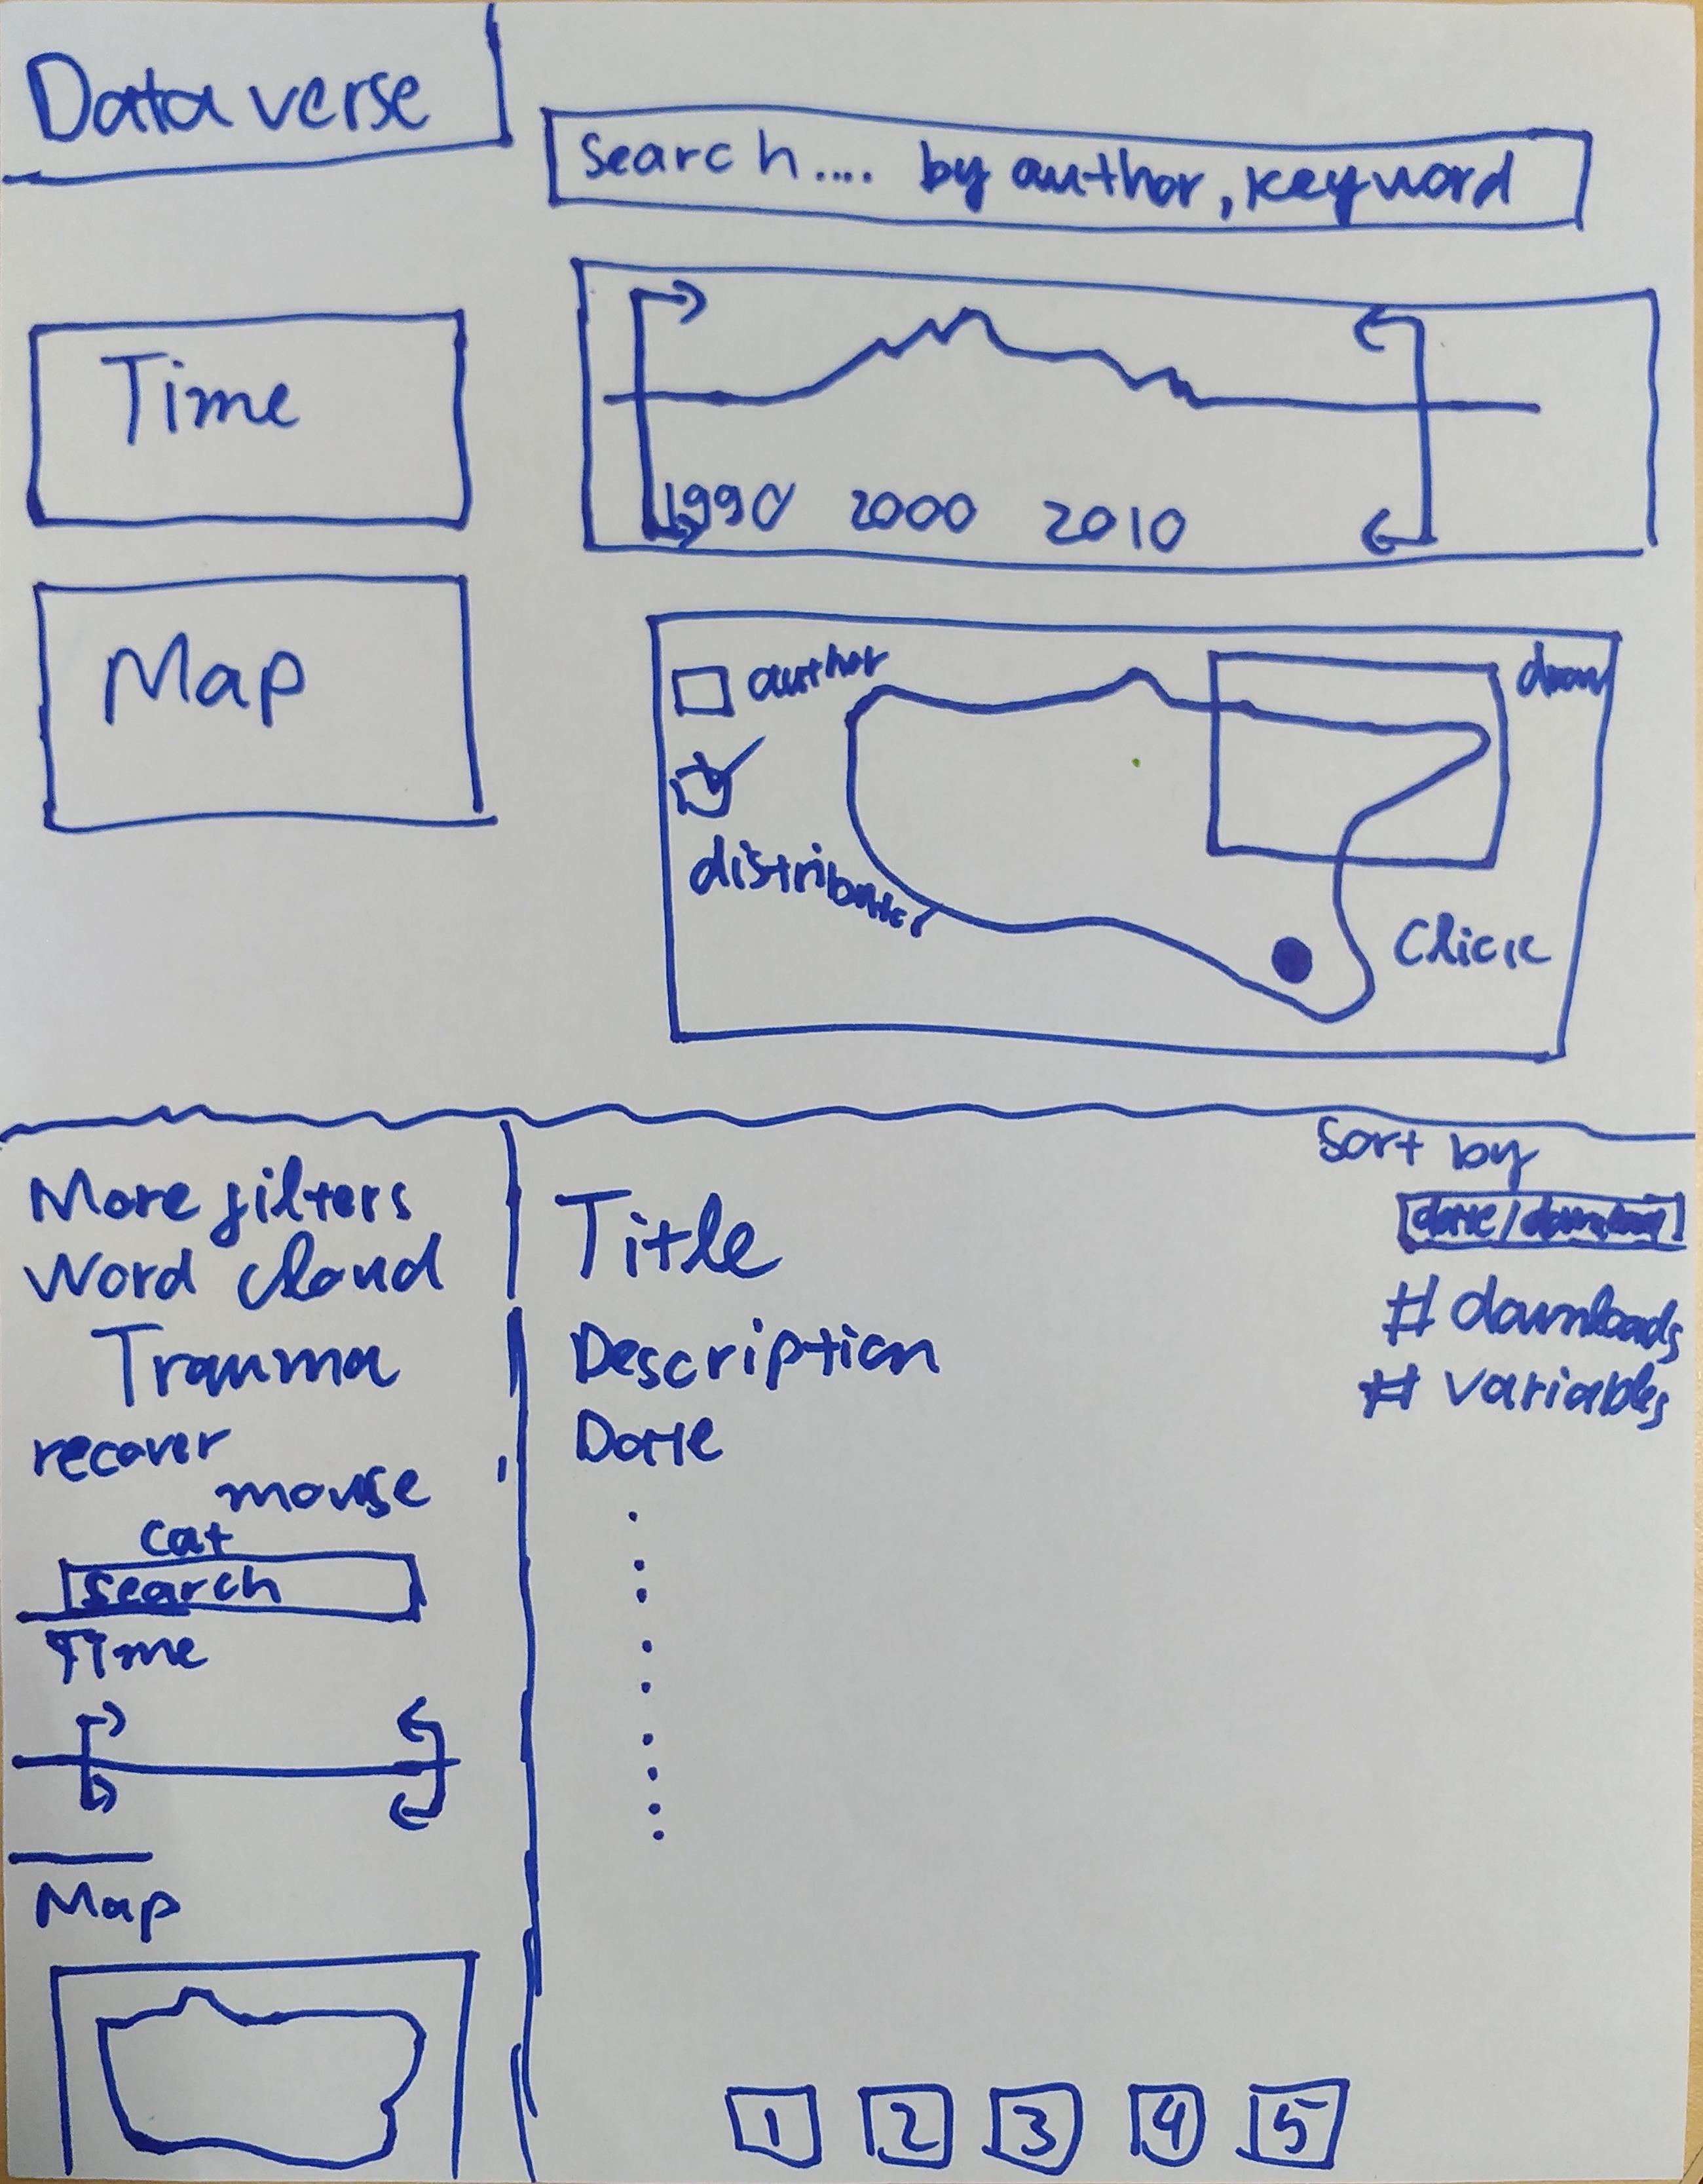 Dataverse
search.... by author, keyword
Time
1990 2000 2010
Map
author
draw
distributer
Click
More filters
Word cloud
Trauma
recover
mouse
cat
search
Time
Map
Sort by
[date/download]
Title
# downloads
Description
# variables
Date
1 2 3 4 5